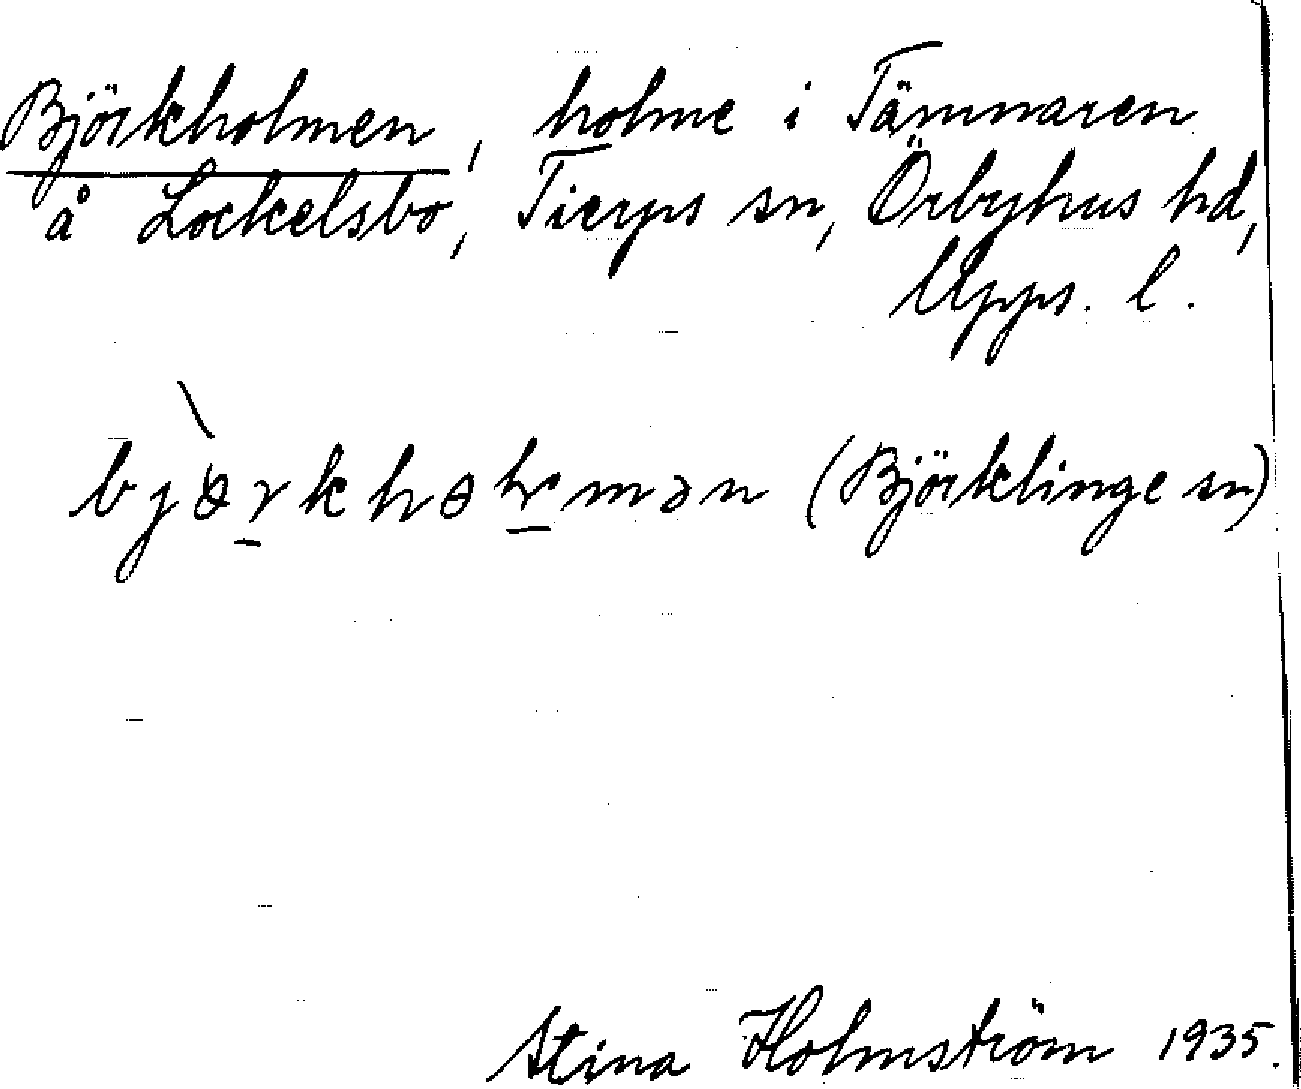 Björkholmen, holme i Tämnaren
å Lockelsbo, Tierps sn, Örbyhus hd,
Upps. l.
(Björklinge sn)
Stina Holmström 1935.